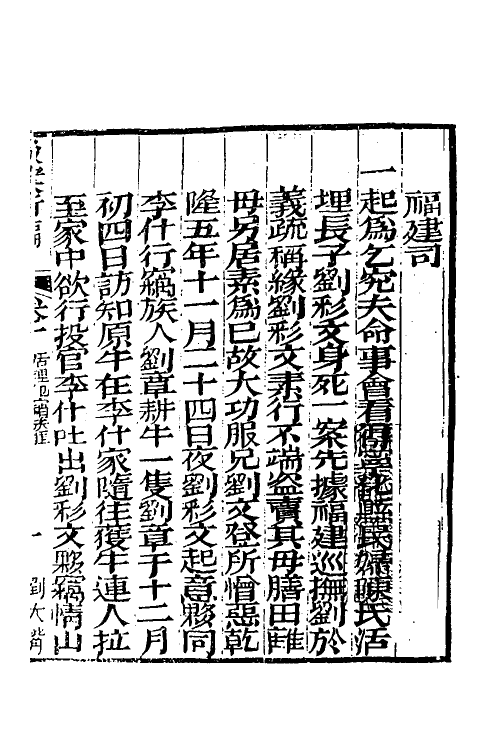 福建司
一起爲乞究夫命事會看得漳浦縣民婦陳氏活
埋長子劉彩文身死一案先據福建巡撫劉於
義疏稱緣劉彩文素行不端盗賣其母膳田離
母另居素爲已故大功服兄劉文登所憎惡乾
隆五年十一月二十四日夜劉彩文起意夥同
李什行竊族人劉章耕牛一隻劉章于十二月
初四日訪知原牛在李什家隨往獲牛連人拉
至家中欲行投官李什吐出劉彩文夥竊情由
新編
卷一
活埋
一
劉大嘴